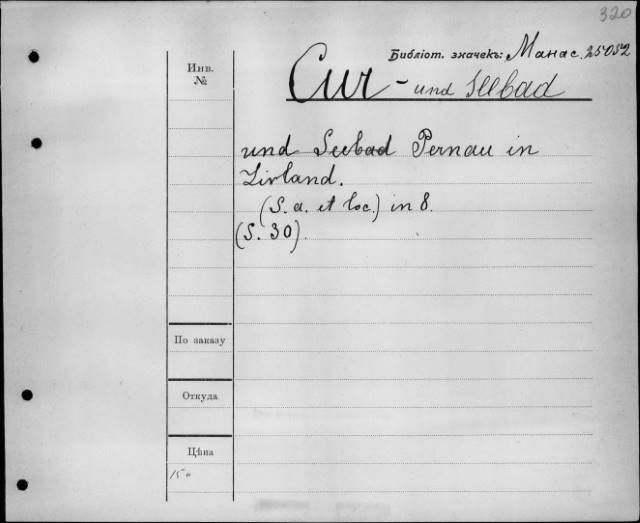 320
Библіот. значекъ: Манас. 25052
Инв.
№
Cur - und Seebad
und Seebad Pernau in
Livland.
(S. a. et loc.) in 8.
(S. 30).
По заказу
Откуда
Цѣна